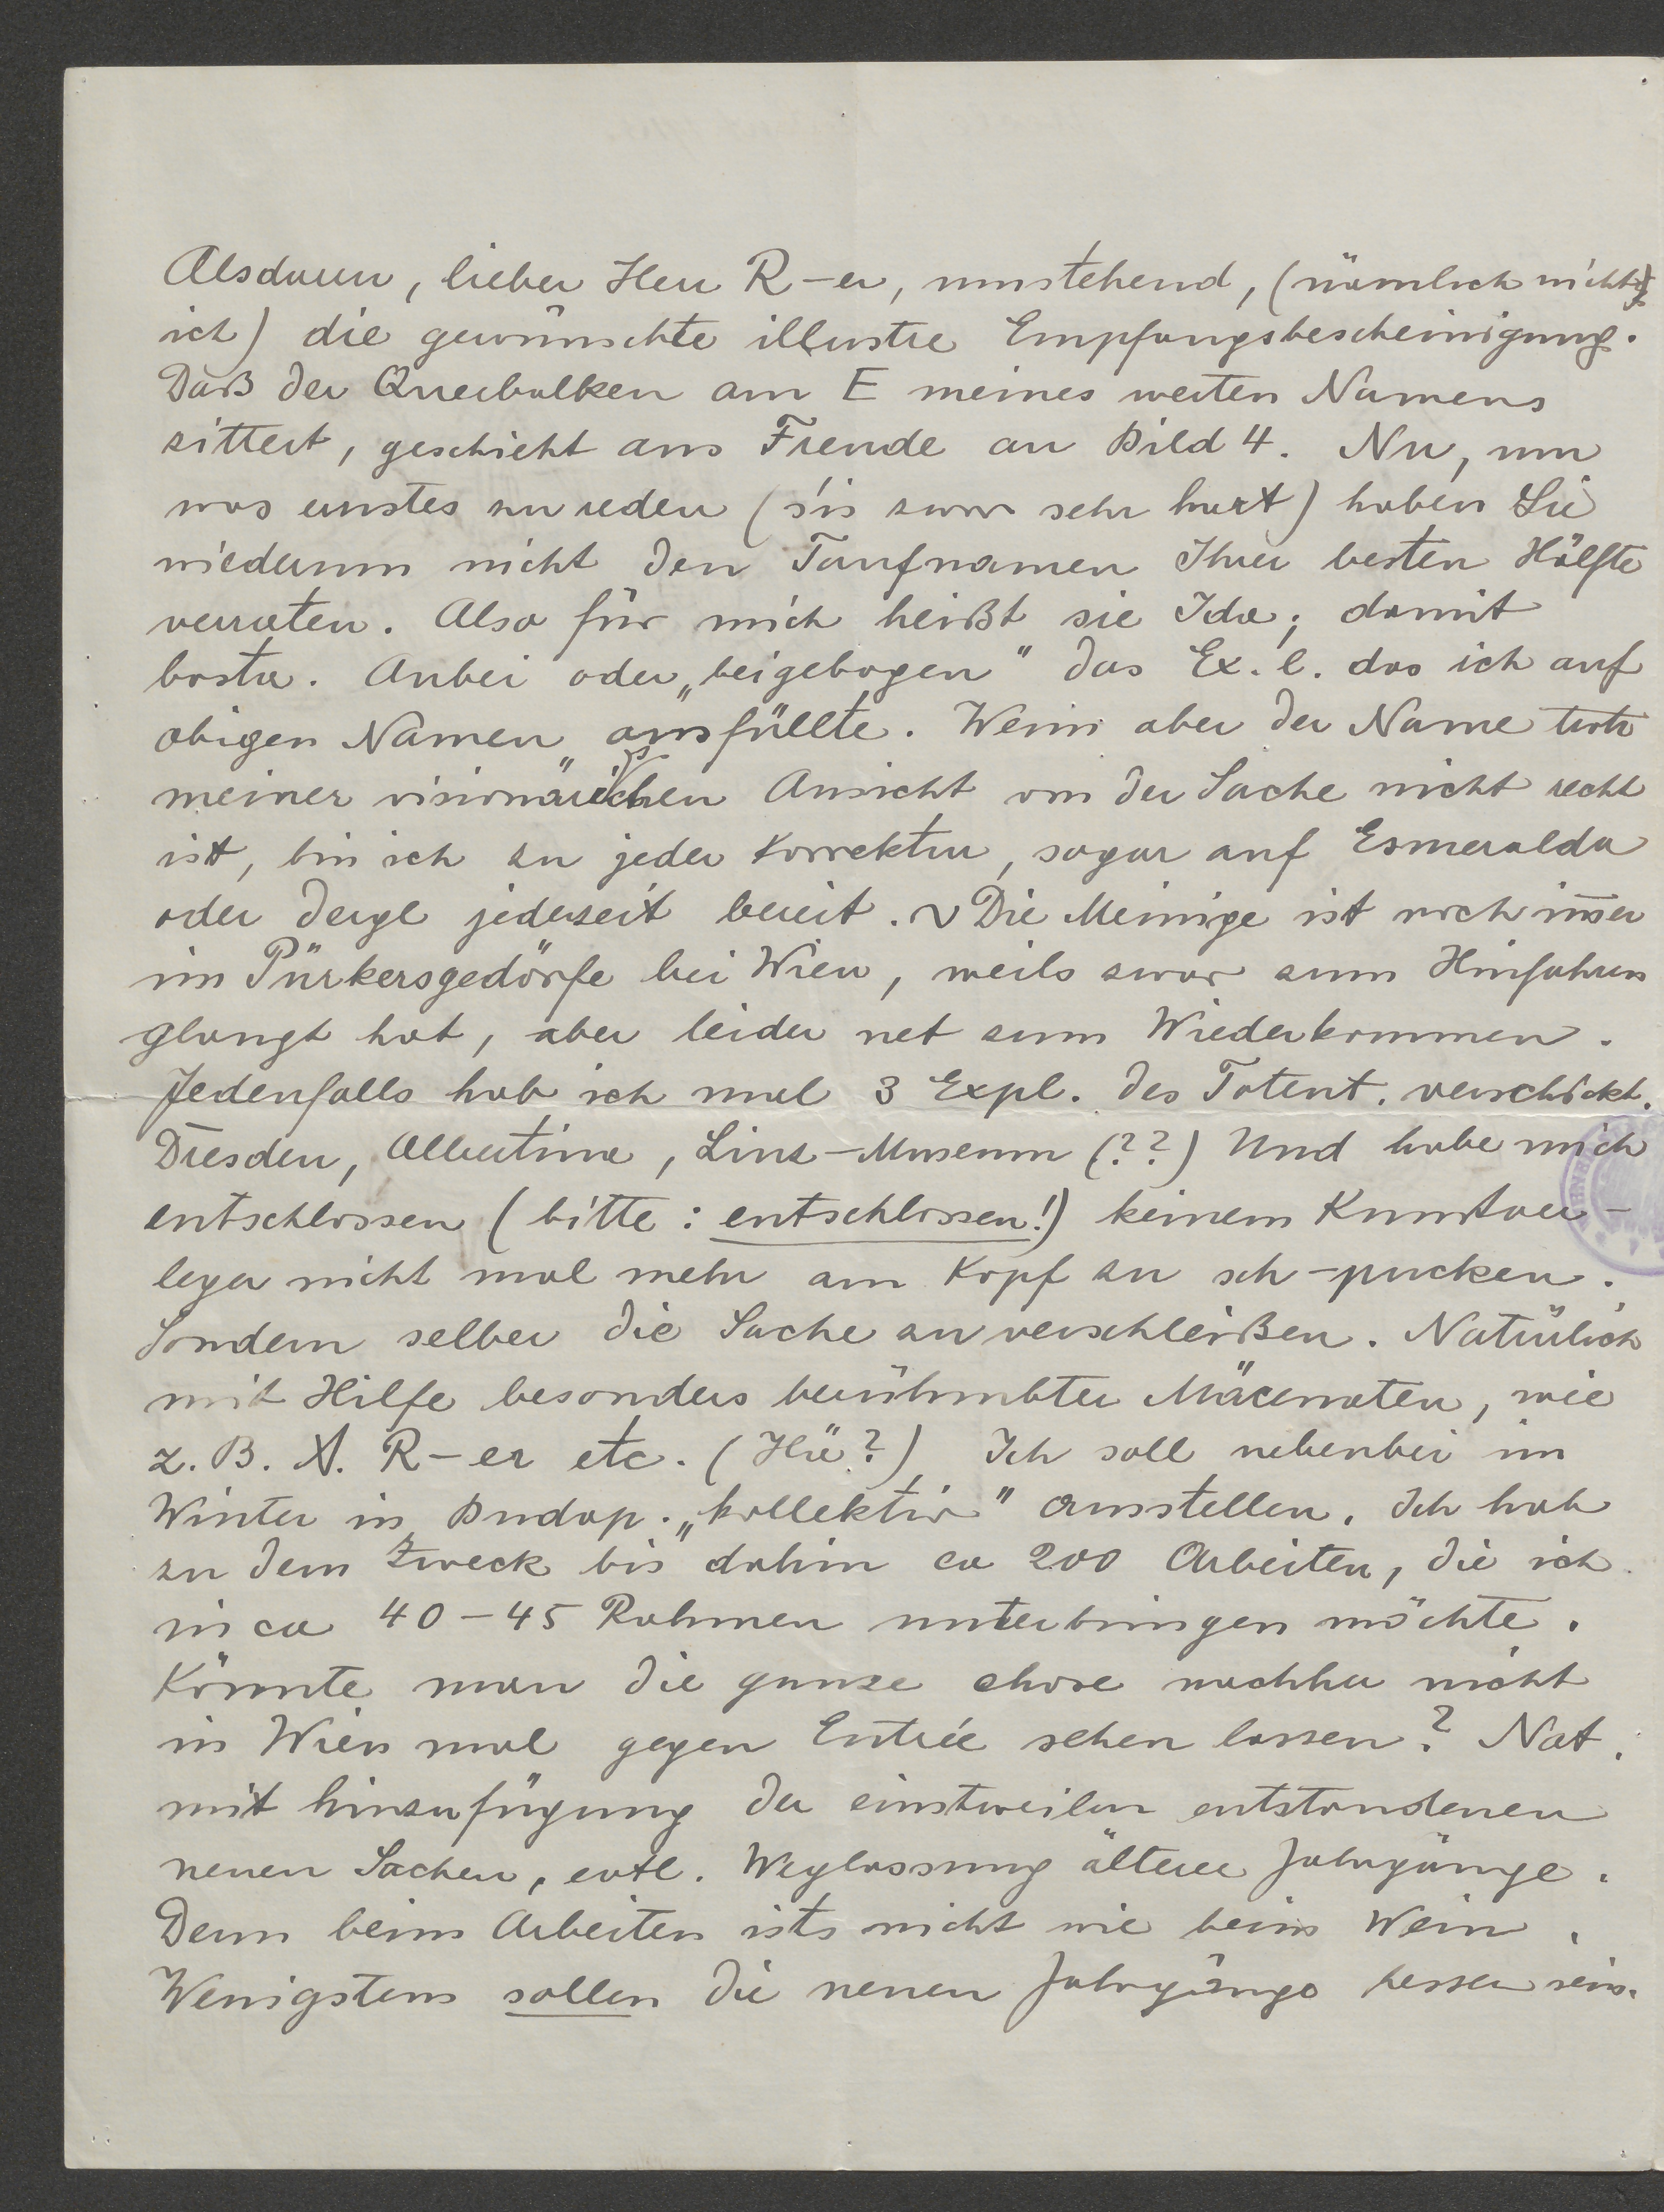 Alsdann, lieber Herr R-er, umstehend, (nämlich nicht
ich) die gewünschte illustre Empfangsbescheinigung.
Daß der Querbalken am E meines werten Namens
zittert, geschieht aus Freude an Bild 4. Nu, um
was ernstes zu reden (s'is zwar sehr hart) haben Sie
wiederum nicht den Taufnamen Ihrer besten Hälfte
verraten. Also für mich heißt sie Ida; damit
basta. Anbei oder „beigebogen" das Ex. l. das ich auf
obigen Namen „ausfüllte. Wenn aber der Name trotz
meiner visionärischen Ansicht von der Sache nicht recht
ist, bin ich zu jeder Korrektur, sogar auf Esmeralda
oder dergl jederzeit bereit. ~ Die Meinige ist noch im̅er
im Pürkersgedörfe bei Wien, weils zwar zum Hinfahren
glangt hat, aber leider net zum Wiederkommen.
Jedenfalls hab ich mal 3 Expl. des Totent. verschickt.
Dresden, Albertina, Linz-Museum (??) Und habe mich
entschlossen (bitte: entschlossen!) keinem Kunstver-
leger nicht mal mehr am Kopf zu sch-pucken.
Sondern selber die Sache zu verschleißen. Natürlich
mit Hilfe besonders berühmbter Mäcenaten, wie
z. B. A. R-er etc. (Hü?) Ich soll nebenbei im
Winter in Budap. „kollektiv" ausstellen. Ich hab
zu dem Zweck bis dahin ca 200 Arbeiten, die ich
in ca 40-45 Rahmen unterbringen möchte.
Könnte man die ganze chose nachher nicht
in Wien mal gegen Entrée sehen lassen? Nat.
mit hinzufügung der einstweilen entstandenen
neuen Sachen, evtl. Weglassung älterer Jahrgänge.
Denn beim Arbeiten ists nicht wie beim Wein.
Wenigstens sollen die neuen Jahrgänge besser sein.